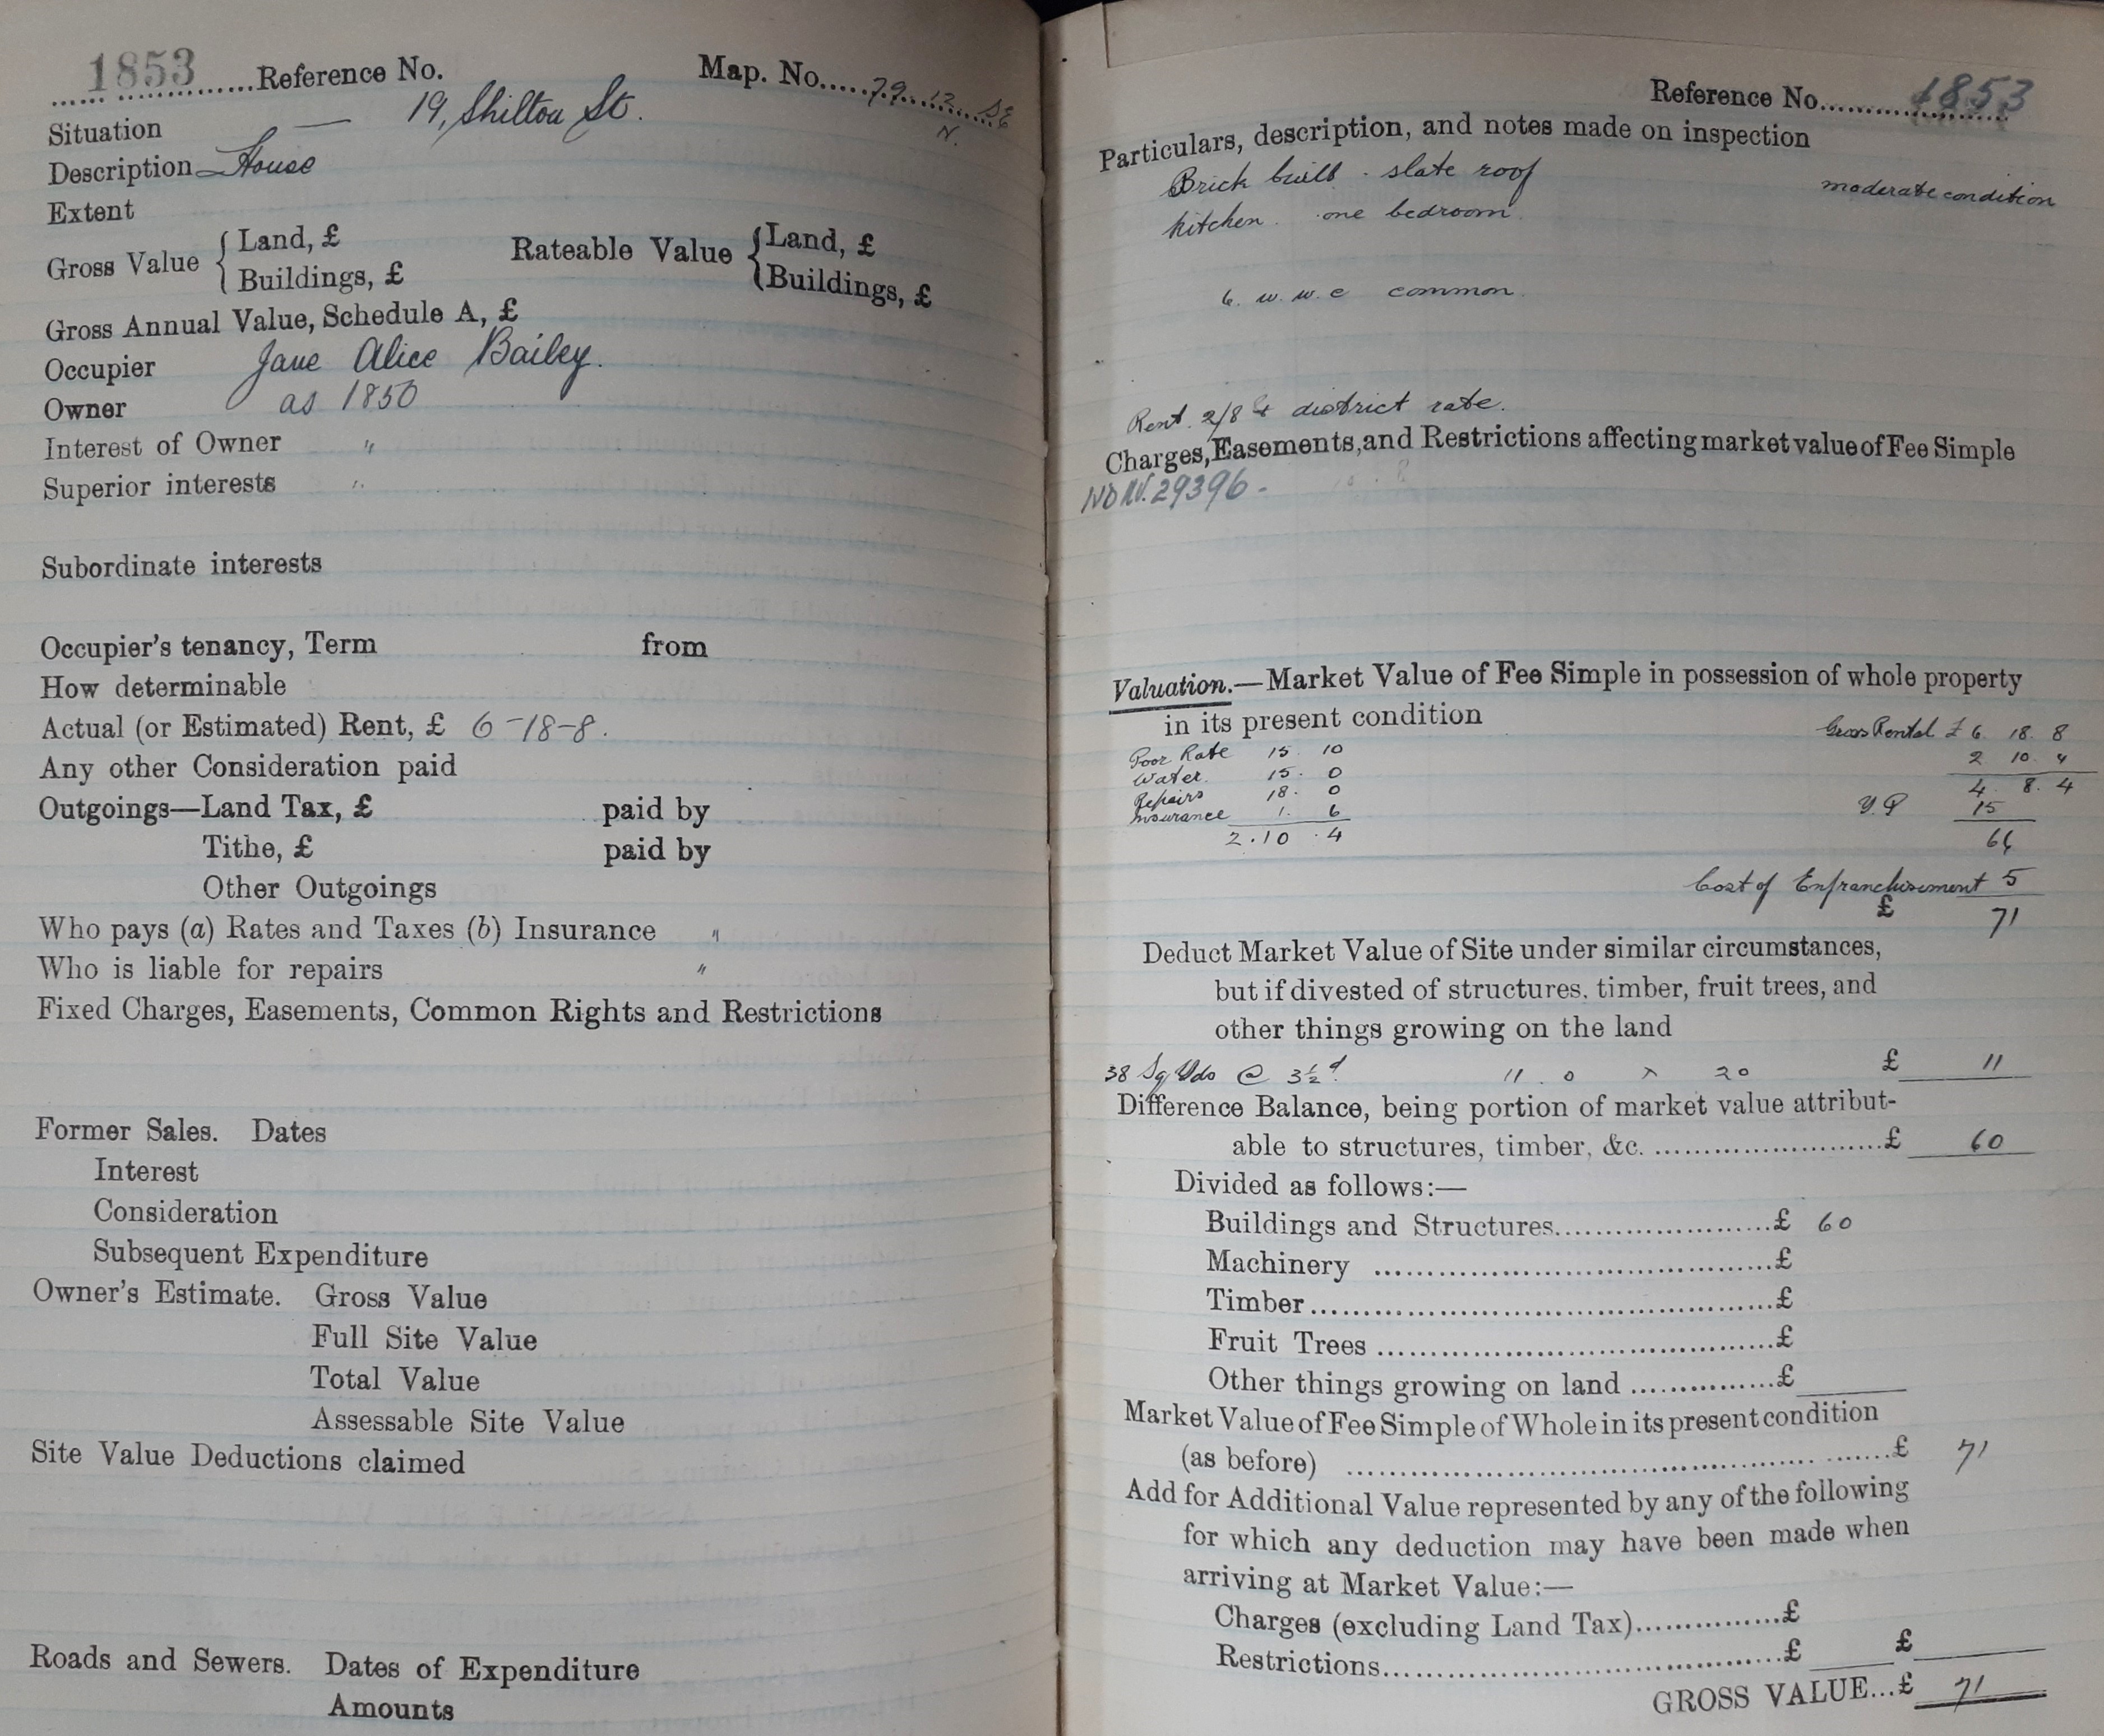 1853 Reference No. Map. No. 79 12 SE
N.
Situation — 19, Shilton St.
Description House
Extent
Gross Value { Land, £ Rateable Value { Land, £
Buildings, £ Buildings, £
Gross Annual Value, Schedule A, £
Occupier Jane Alice Bailey.
Owner as 1850
Interest of Owner "
Superior interests "
Subordinate interests
Occupier's tenancy, Term from
How determinable
Actual (or Estimated) Rent, £ 6-18-8.
Any other Consideration paid
Outgoings—Land Tax, £ paid by
Tithe, £ paid by
Other Outgoings
Who pays (a) Rates and Taxes (b) Insurance "
Who is liable for repairs "
Fixed Charges, Easements, Common Rights and Restrictions
Former Sales. Dates
Interest
Consideration
Subsequent Expenditure
Owner's Estimate. Gross Value
Full Site Value
Total Value
Assessable Site Value
Site Value Deductions claimed
Roads and Sewers. Dates of Expenditure
Amounts
Reference No. 1853
Particulars, description, and notes made on inspection
Brick built. slate roof moderate condition
kitchen. one bedroom.
w. w. c common.
Rent. 2/8 & district rate.
Charges, Easements, and Restrictions affecting market value of Fee Simple
29396.
Valuation.—Market Value of Fee Simple in possession of whole property
in its present condition Gross Rental £ 6. 18. 8
Poor Rate 15 10 2 10 4
Water. 15. 0 4. 8. 4
Repairs 18. 0 Y.P 15
Insurance 1. 6 66
2. 10. 4
Cost of Enfranchisement 5
£ 71
Deduct Market Value of Site under similar circumstances,
but if divested of structures, timber, fruit trees, and
other things growing on the land
38 Sq Yds @ 3½d 11. 0 × 20 £ 11
Difference Balance, being portion of market value attribut-
able to structures, timber, &c. £ 60
Divided as follows:—
Buildings and Structures £ 60
Machinery £
Timber £
Fruit Trees £
Other things growing on land £
Market Value of Fee Simple of Whole in its present condition
(as before) £ 71
Add for Additional Value represented by any of the following
for which any deduction may have been made when
arriving at Market Value:—
Charges (excluding Land Tax) £
Restrictions £ £
GROSS VALUE...£ 71